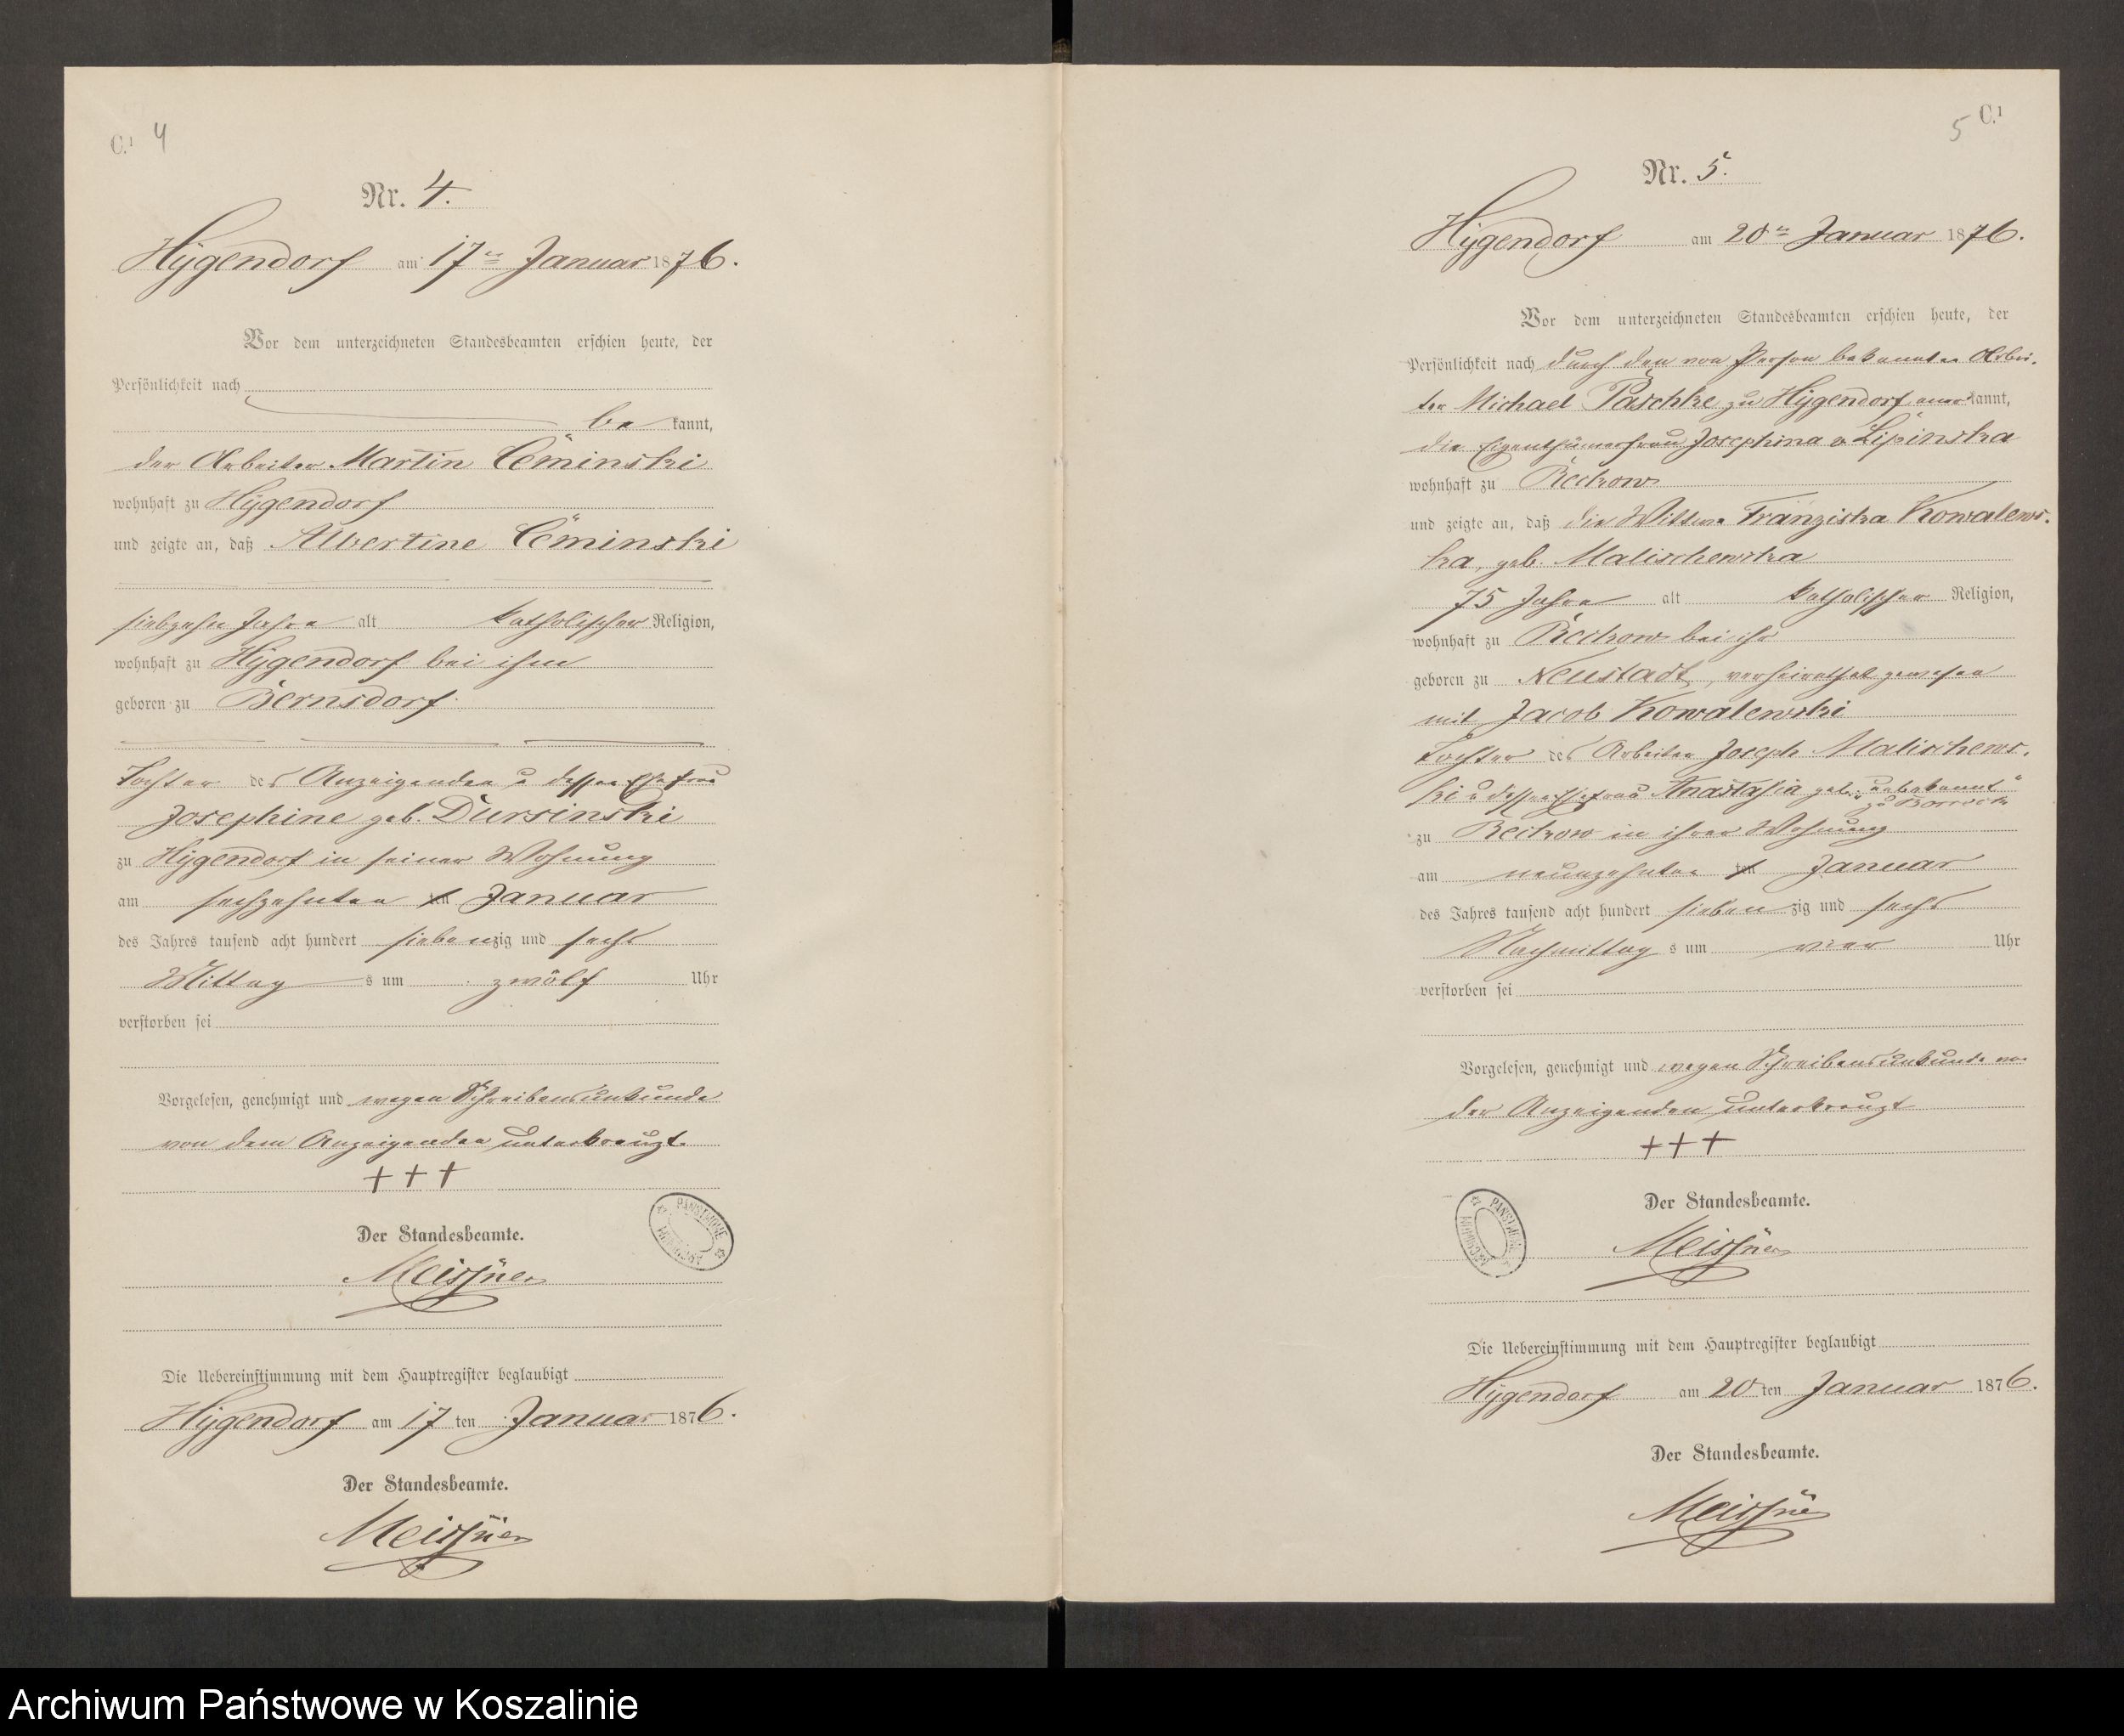 C.¹ 4
Nr. 4.
Hÿgendorf am 17ten Januar 1876.
Vor dem unterzeichneten Standesbeamten erschien heute, der
Persönlichkeit nach
bekannt,
der Arbeiter Martin Cöminski
wohnhaft zu Hÿgendorf
und zeigte an, daß Albertine Cöminski
siebzehn Jahre alt katholischer Religion,
wohnhaft zu Hÿgendorf bei ihm
geboren zu Bernsdorf.
Tochter des Anzeigenden u dessen Ehefrau
Josephine geb. Dursinski
zu Hÿgendorf in seiner Wohnung
am sechzehnten ten Januar
des Jahres tausend acht hundert siebenzig und sechs
Mittag s um zwölf Uhr
verstorben sei
Vorgelesen, genehmigt und wegen Schreibensunkunde
von dem Anzeigenden unterkreuzt
+++
Der Standesbeamte.
Meissner
PAŃSTWOWE ARCHIWUM
Die Uebereinstimmung mit dem Hauptregister beglaubigt
Hÿgendorf am 17 ten Januar 1876.
Der Standesbeamte.
Meissner
5 C.¹
Nr. 5.
Hÿgendorf am 20ten Januar 1876.
Vor dem unterzeichneten Standesbeamten erschien heute, der
Persönlichkeit nach durch den von Person bekannten Arbei-
ter Michael Paschke zu Hÿgendorf anerkannt,
die Eigenthümerfrau Josephina v Lipinska
wohnhaft zu Reckow
und zeigte an, daß die Wittwe Franziska Kowalews-
ka, geb. Malischewska
75 Jahre alt katholischer Religion,
wohnhaft zu Reckow bei ihr
geboren zu Neustadt, verheirathet gewesen
mit Jacob Kowalewski
Tochter des Arbeiter Joseph Malischews-
ki u dessen Ehefrau Anastasia geb. „unbekannt“
zu
zu Reckow in ihrer Wohnung
am neunzehnten ten Januar
des Jahres tausend acht hundert sieben zig und sechs
Nachmittag s um vier Uhr
verstorben sei
Vorgelesen, genehmigt und wegen Schreibensunkunde von
der Anzeigenden unterkreuzt
+++
Der Standesbeamte.
Meissner
PAŃSTWOWE ARCHIWUM
Die Uebereinstimmung mit dem Hauptregister beglaubigt
Hÿgendorf am 20 ten Januar 1876.
Der Standesbeamte.
Meissner
Archiwum Państwowe w Koszalinie